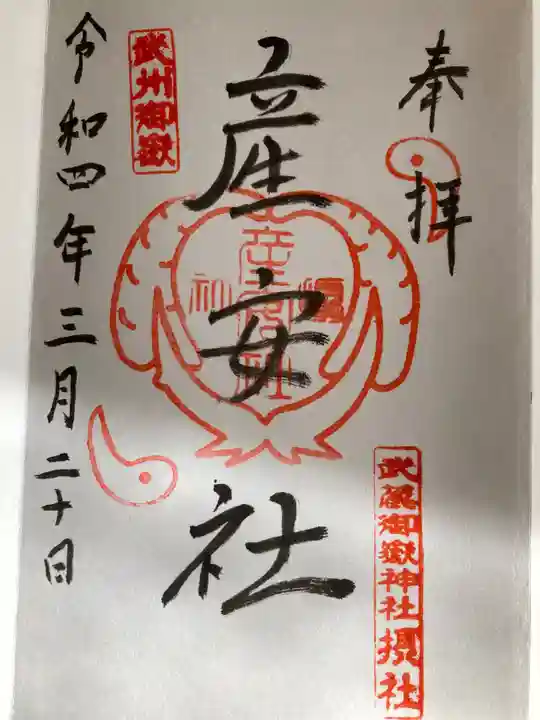 奉拝
武蔵御嶽神社摂社
産安社
武州御嶽
令和四年三月二十日